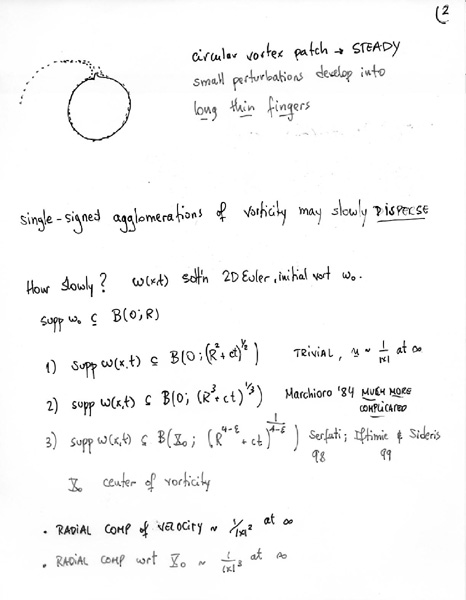 (2
circular vortex patch → STEADY
small perturbations develop into
long thin fingers
single-signed agglomerations of vorticity may slowly DISPERSE
How slowly? ω(x,t) sol'n 2D Euler, initial vort ω₀.
supp ω₀ ⊆ B(0;R)
1) supp ω(x,t) ⊆ B(0;(R²+ct)^{1/2}) TRIVIAL, u ~ 1/|x| at ∞
2) supp ω(x,t) ⊆ B(0; (R³+ct)^{1/3}) Marchioro '84 MUCH MORE
COMPLICATED
3) supp ω(x,t) ⊆ B(X₀; (R^{4-ε}+ct)^{1/4-ε}) Serfati; Iftimie & Sideris
98 99
X₀ center of vorticity
• RADIAL COMP of VELOCITY ~ 1/|x|² at ∞
• RADIAL COMP wrt X₀ ~ 1/|x|³ at ∞